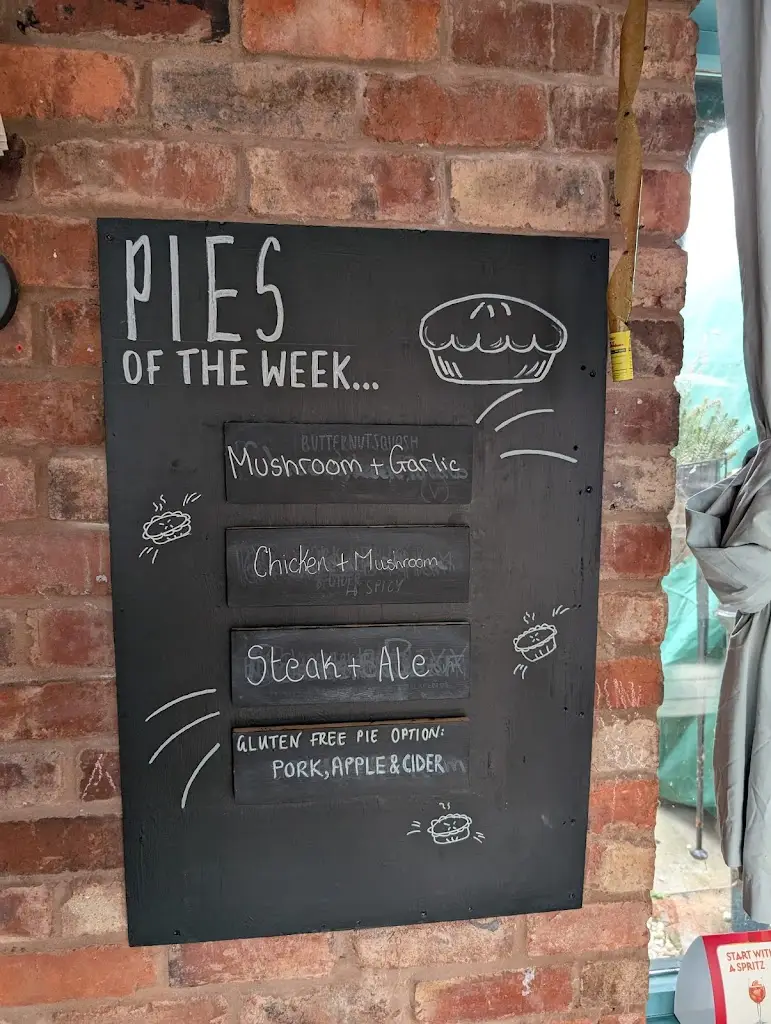 PIES
OF THE WEEK...
BUTTERNUT SQUASH
Mushroom + Garlic
Chicken + Mushroom
& SPICY
Steak + Ale
GLUTEN FREE PIE OPTION:
PORK, APPLE & CIDER
START WITH
A SPRITZ